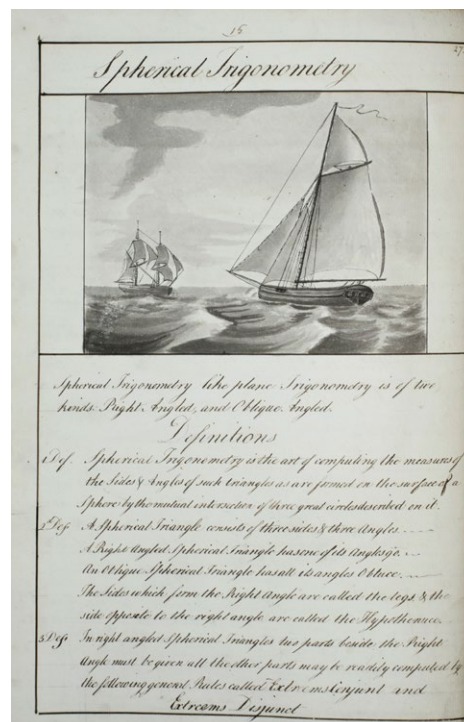 15
27
Spherical Trigonometry
Spherical Trigonometry like plane Trigonometry is of two
kinds. Right Angled, and Oblique Angled.
Definitions
1 Def. Spherical Trigonometry is the art of computing the measures of
the Sides & Angles of such triangles as are formed on the surface of a
Sphere by the mutual intersection of three great circles described on it.
2d Def. A Spherical Triangle consists of three sides & three Angles.
A Right Angled Spherical Triangle has one of its Angles 90.
An Oblique Spherical Triangle has all its angles
The Sides which form the Right Angle are called the legs & the
side opposite to the right angle are called the Hypothenuce
3 Def. In right angled Spherical Triangles two parts beside the Right
Angle must be given all the other parts may be readily computed by
the following general Rules called Extrems Conjunct and
Extreems Disjunct